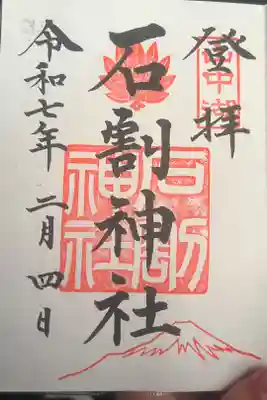 山中湖
登拝
石割神社
石割神社
令和七年二月四日